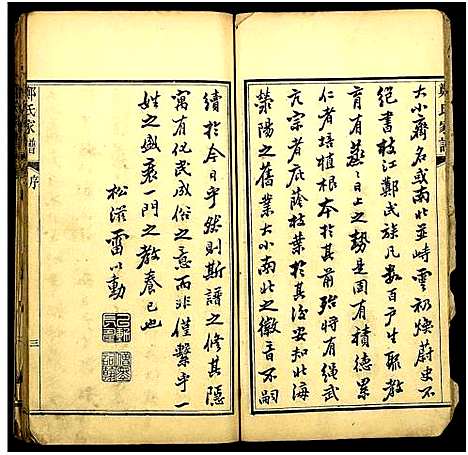 鄭氏家譜
大小齊名或南北並峙雲礽燦蔚史不
絕書枝江鄭氏族凡數百戶生聚教
育有蒸蒸日上之勢是固有積德累
仁者培植根本於其前殆將有繩武
亢宗者庇蔭枝葉於其後安知北海
滎陽之舊業大小南北之徽音不嗣
續於今日乎然則斯譜之修其隱
寓有化民成俗之意而非僅繫乎一
姓之盛衰一門之教養已也
松滋雷以動
鄭氏家譜
序
三